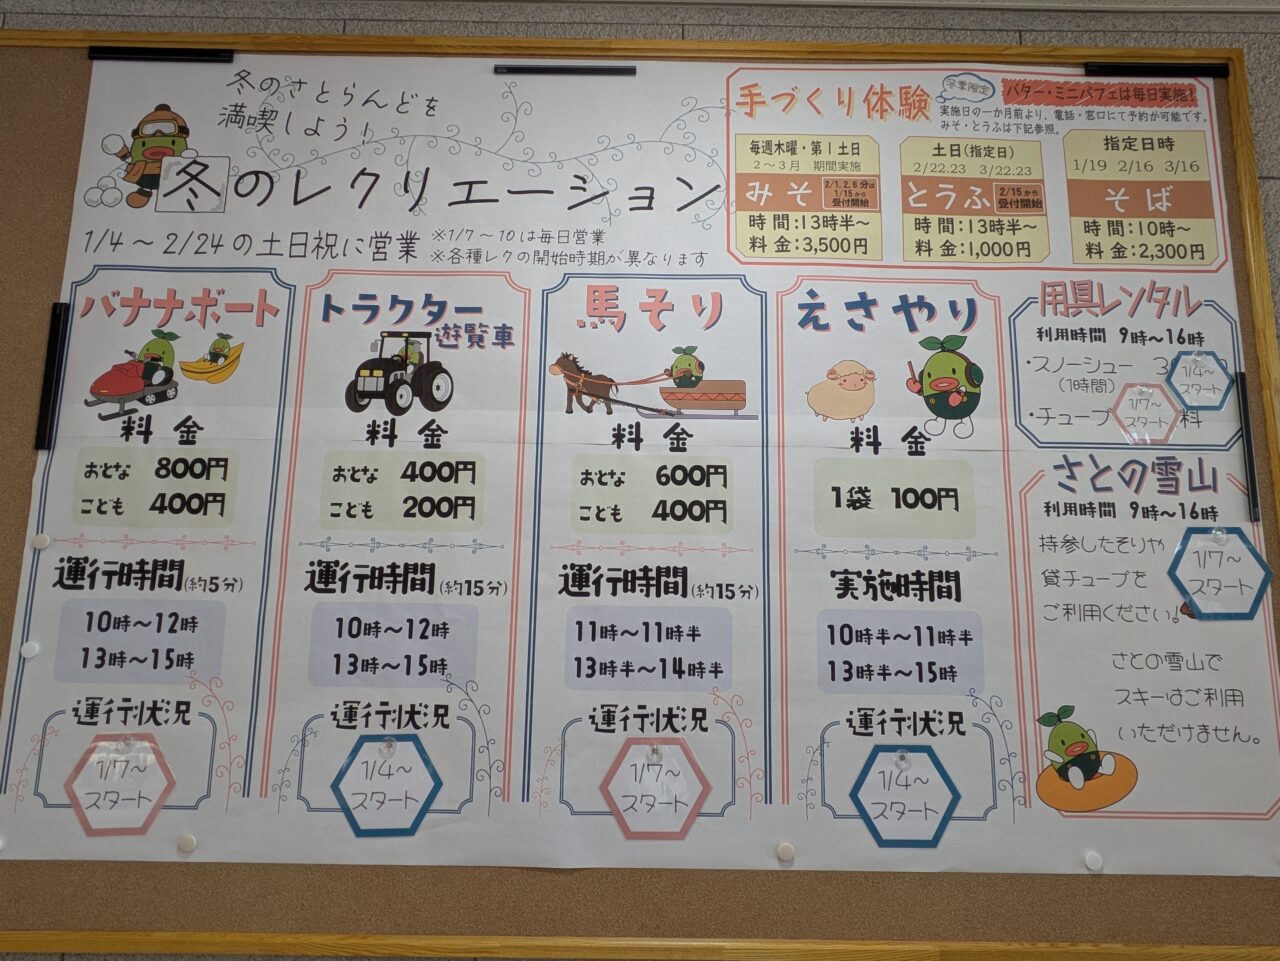 冬のさとらんどを
満喫しよう！
冬のレクリエーション
1/4～2/24の土日祝に営業
※1/7～10は毎日営業
※各種レクの開始時期が異なります
手づくり体験
冬季限定
バター・ミニパフェは毎日実施！
実施日の一か月前より、電話・窓口にて予約が可能です。
みそ・とうふは下記参照。
毎週木曜・第1土日
2～3月 期間実施
みそ
2/1.2.6分は
1/15から
受付開始
時間：13時半～
料金：3,500円
土日(指定日)
2/22.23 3/22.23
とうふ
2/15から
受付開始
時間：13時半～
料金：1,000円
指定日時
1/19 2/16 3/16
そば
時間：10時～
料金：2,300円
バナナボート
料金
おとな 800円
こども 400円
運行時間(約5分)
10時～12時
13時～15時
運行状況
1/7～
スタート
トラクター
遊覧車
料金
おとな 400円
こども 200円
運行時間(約15分)
10時～12時
13時～15時
運行状況
1/4～
スタート
馬そり
料金
おとな 600円
こども 400円
運行時間(約15分)
11時～11時半
13時半～14時半
運行状況
1/7～
スタート
えさやり
料金
1袋 100円
実施時間
10時半～11時半
13時半～15時
運行状況
1/4～
スタート
用具レンタル
利用時間 9時～16時
・スノーシュー 3
(1時間)
1/4～
スタート
・チューブ 料
1/7～
スタート
さとの雪山
利用時間 9時～16時
持参したそりや
貸チューブを
ご利用ください！
1/7～
スタート
さとの雪山で
スキーはご利用
いただけません。